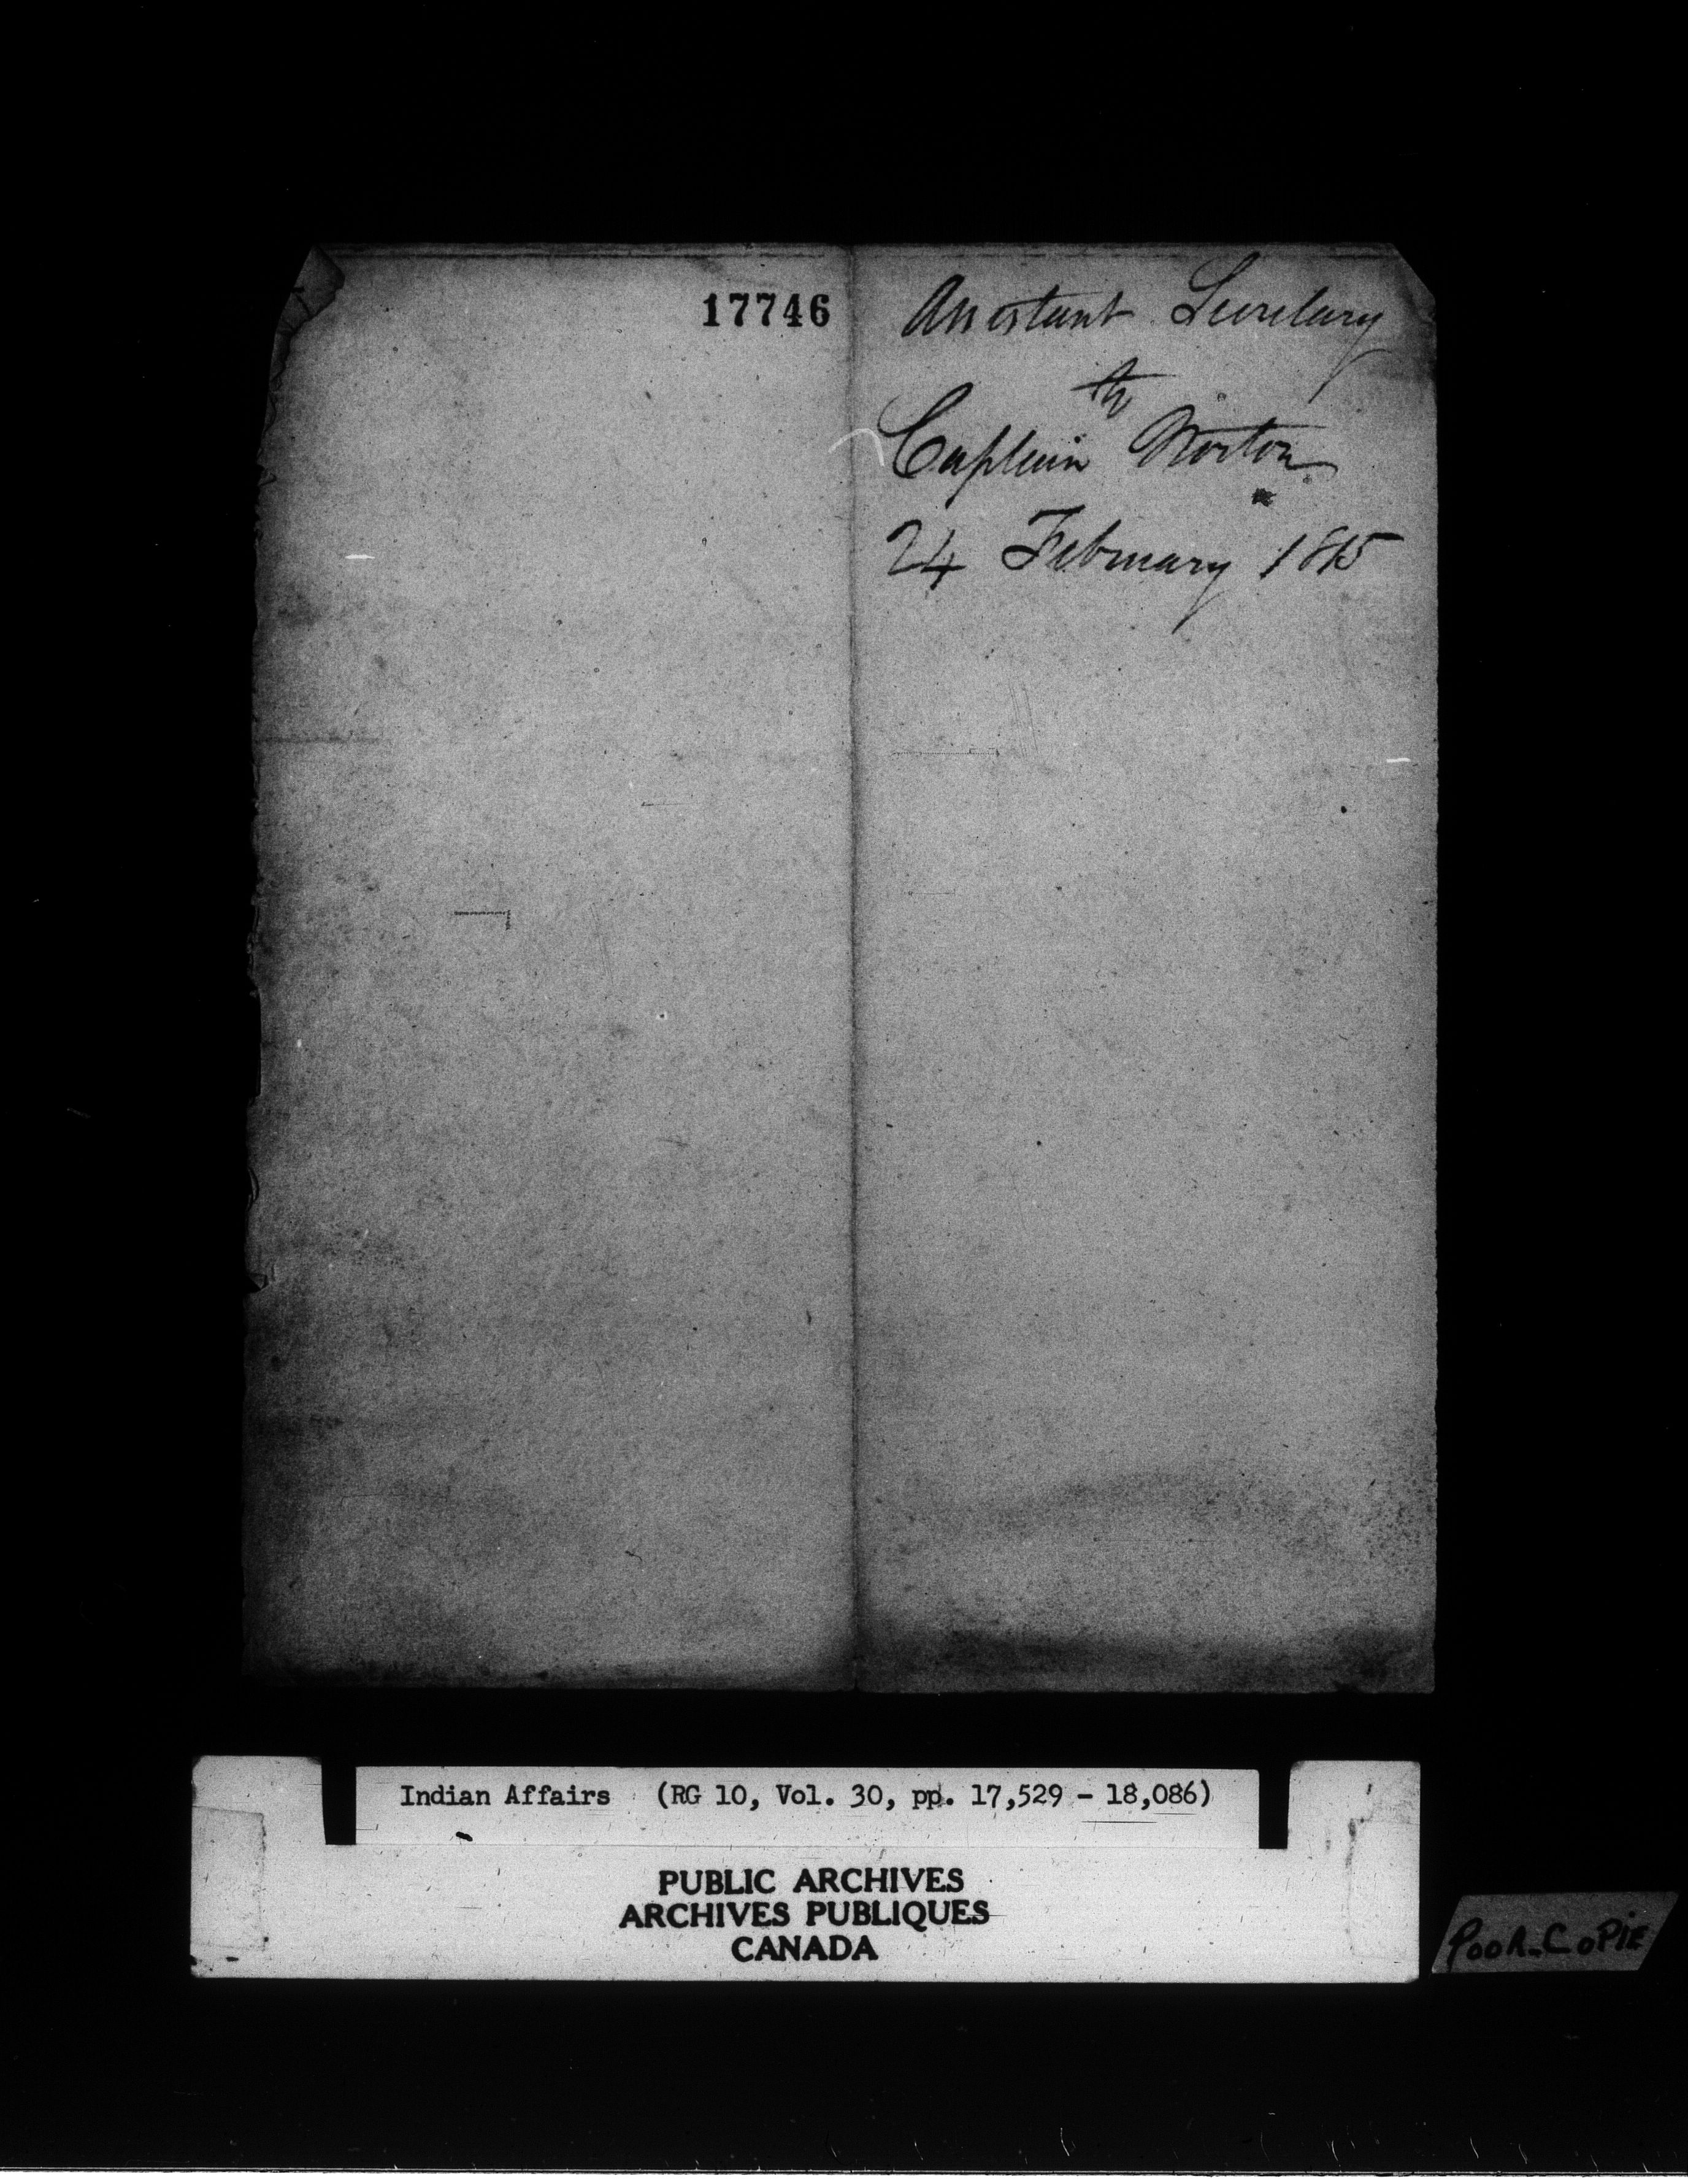 17746
Assistant Secretary
to
Captain Norton
24 February 1815
Indian Affairs (RG 10, Vol. 30, pp. 17,529 - 18,086)
PUBLIC ARCHIVES
ARCHIVES PUBLIQUES
CANADA
POOR_COPIE